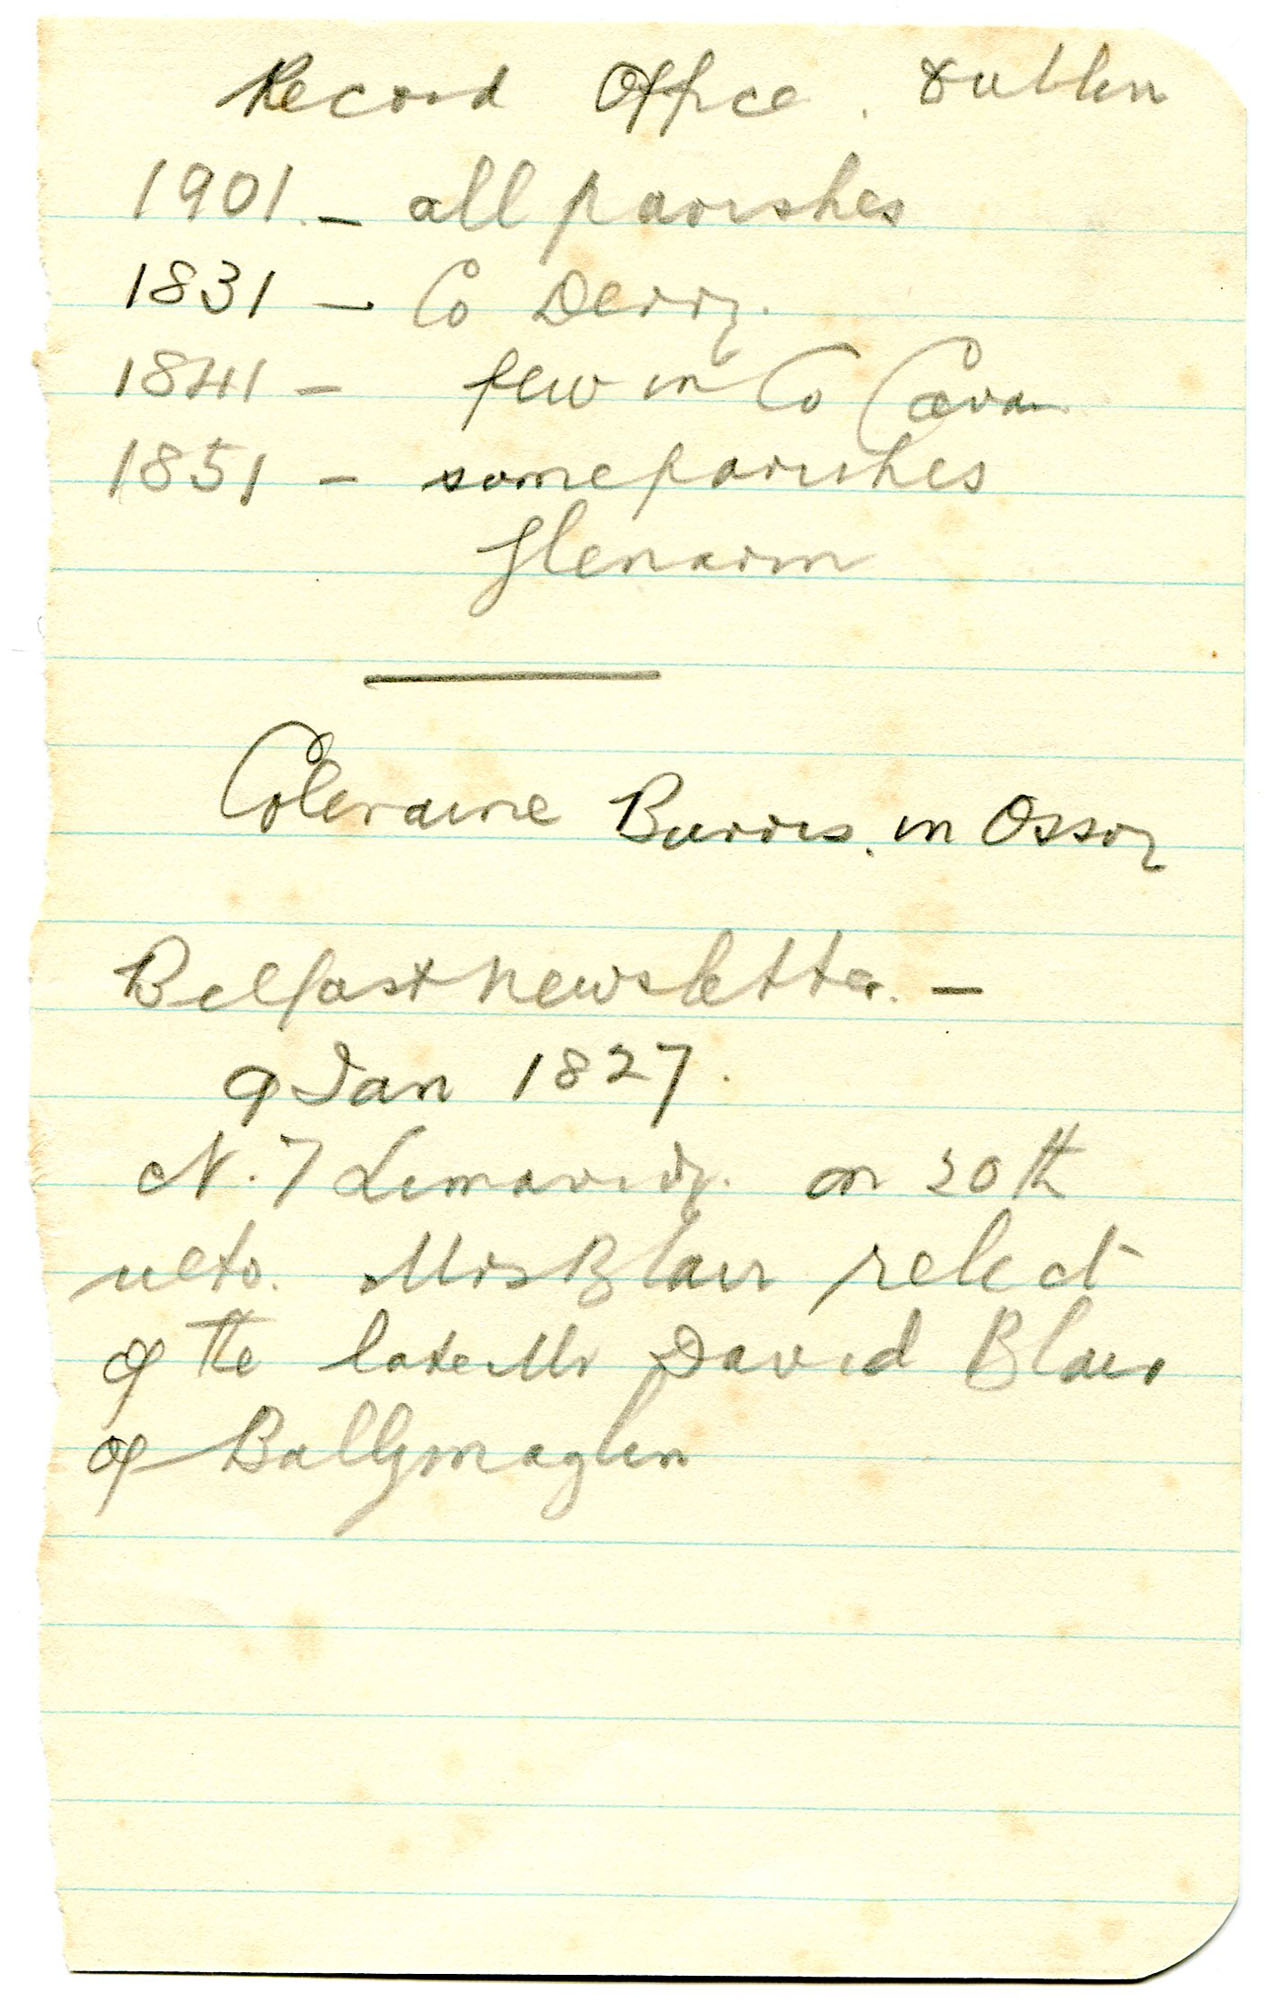 Record Office. Dublin
1901 - all parishes
1831 - Co Derry.
1841 - few in Co Cavan
1851 - some parishes
Glenarm
Coleraine Burris. in Ossory
Belfast Newsletter. -
9 Jan 1827.
N. T Limavady. on 20th
ulto. Mrs Blair relect
of the late Mr David Blair
of Ballymaglin